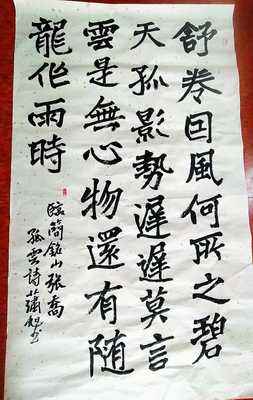 舒卷囙風何所之碧
天孤影勢遲遲莫言
雲是無心物還有隨
龍作雨時
臨簡銘山張喬
孤雲詩蕭書